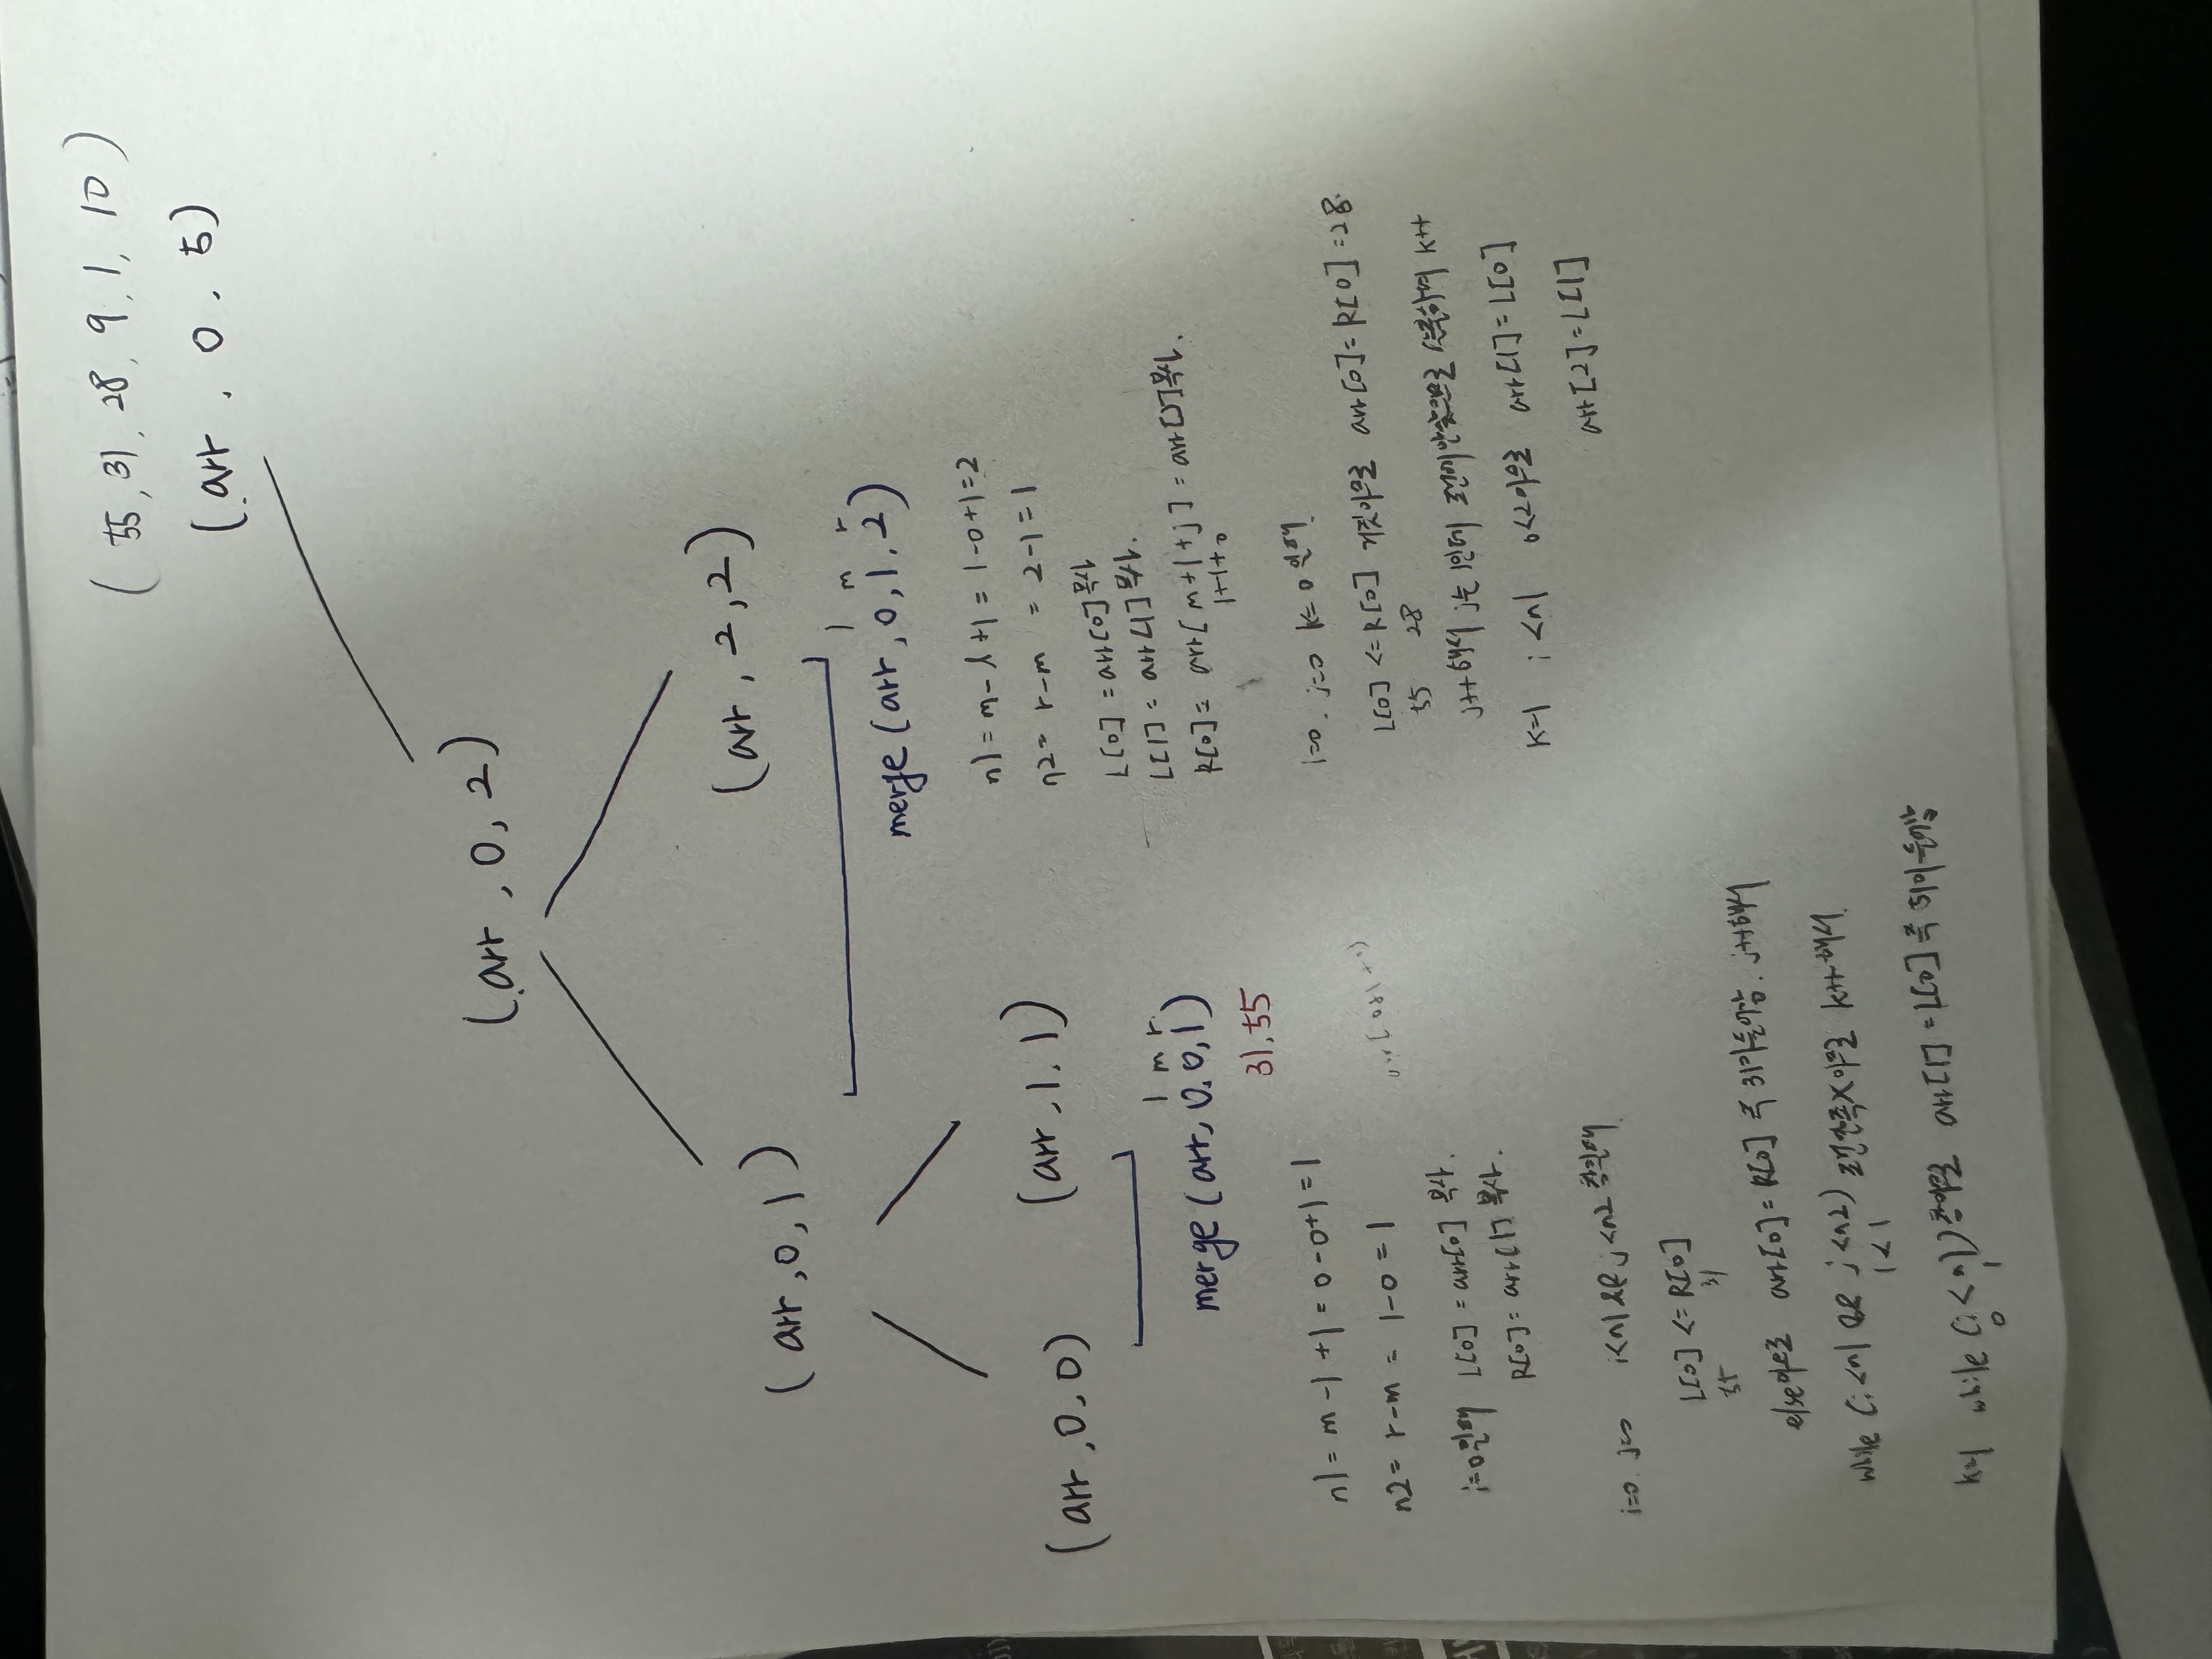 ( 55, 31, 28, 9, 1, 10 )
(arr, 0, 5)
(arr, 0, 2)
(arr, 0, 1)
(arr, 2, 2)
l m r
merge (arr, 0, 1, 2)
(arr, 0, 0)
(arr, 1, 1)
l m r
merge (arr, 0, 0, 1)
31, 55
n1 = m - l + 1 = 0 - 0 + 1 = 1
n2 = r - m = 1 - 0 = 1
i=0일때 L[0] = arr[0] 복사.
R[0] = arr[1] 복사.
i=0. j=0 i<n1 && j<n2 참일때
L[0] <= R[0]
55 31
else이므로 arr[0] = R[0] 즉 31이 들어감. j++해서
while (i<n1 && j<n2) 조건만족X이므로 k++해서
1 < 1
k=1 while (i < n1) 참이므로 arr[1] = L[0] 즉 들어감
0 1
n1 = m - l + 1 = 1 - 0 + 1 = 2
n2 = r - m = 2 - 1 = 1
L[0] = arr[0] 복사
L[1] = arr[1] 복사.
R[0] = arr[m+1+j] = arr[2] 복사.
1+1+0
i=0. j=0 k=0 일때
L[0] <= R[0] 거짓이므로 arr[0] = R[0] = 28.
55 28
j++해서 j는 1인데 조건에 안맞으므로 k++
k=1 i < n1 0<2이므로 arr[1] = L[0]
arr[2] = L[1]